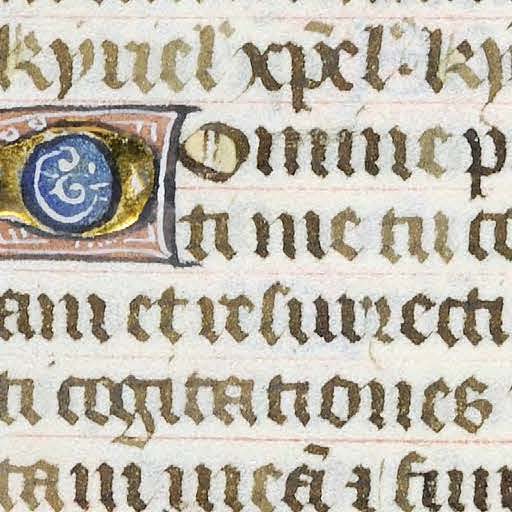 kyriel' xp̄el'. ky
Domine p
ti me tu co
am et resurrecti
ti cogitationes
tam meā ⁊ fun